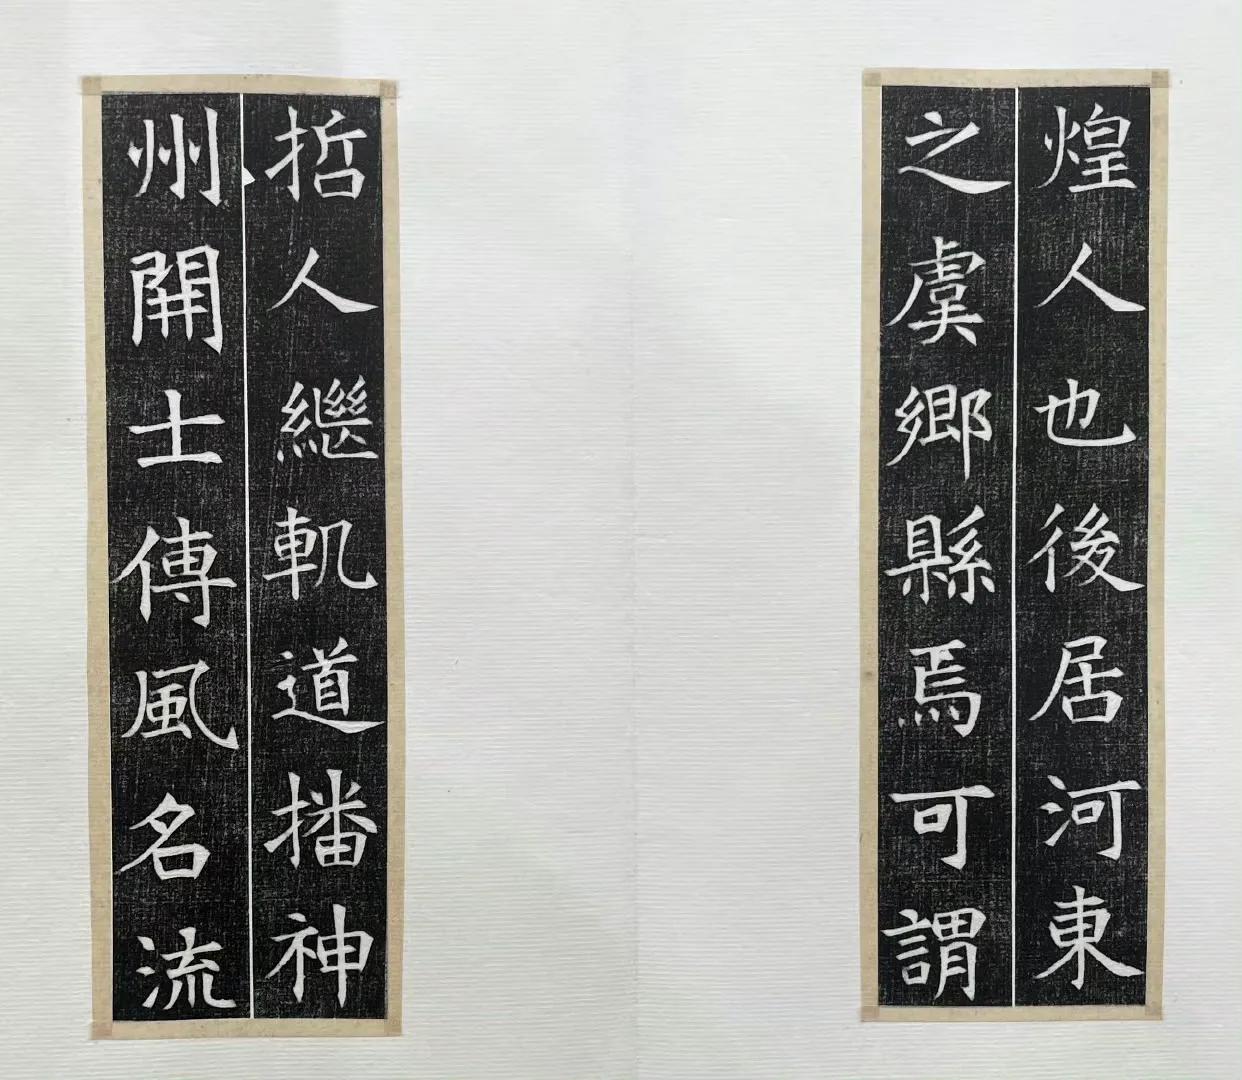 煌人也後居河東
之虞鄉縣焉可謂
哲人繼軌道播神
州開士傳風名流